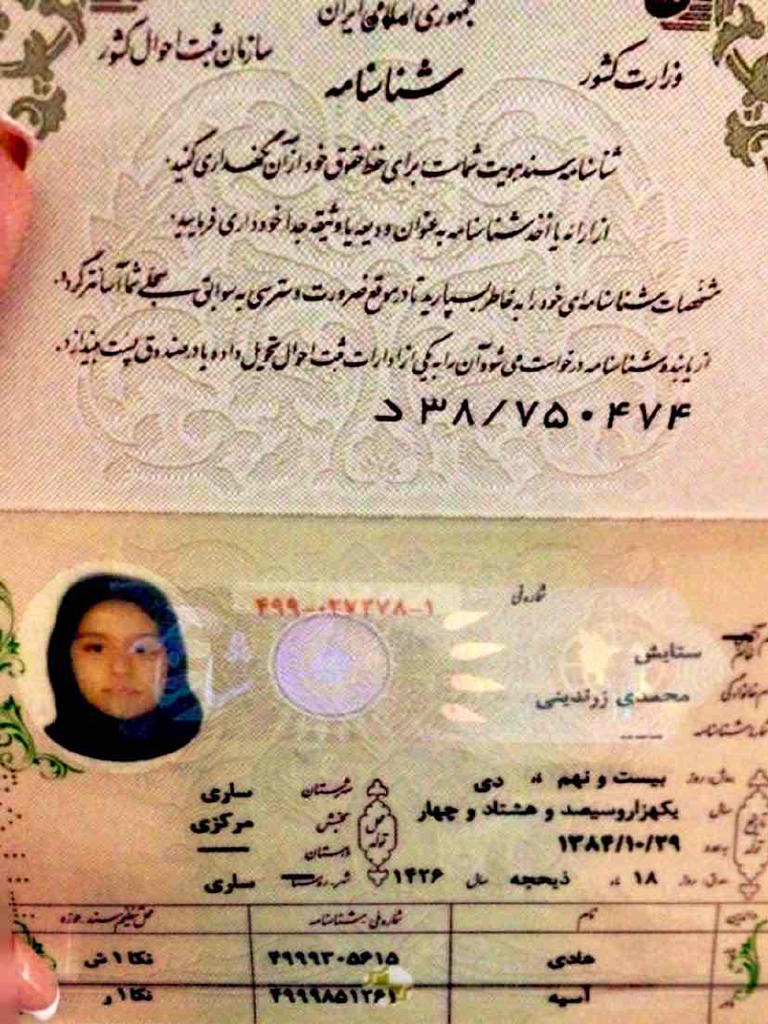 جمهوری اسلامی ایران
وزارت کشور
سازمان ثبت احوال کشور
شناسنامه
شناسنامه سند هویت شماست برای حفظ حقوق خود از آن نگهداری کنید.
از ارائه یا اخذ شناسنامه به عنوان ودیعه یا وثیقه جداً خودداری فرمایید.
مشخصات شناسنامه‌ای خود را به خاطر بسپارید تا در موقع ضرورت دسترسی به سوابق سجلی شما آسانتر گردد.
از یابنده شناسنامه درخواست می شود آن را به یکی از ادارات ثبت احوال تحویل داده یا در صندوق پست بیندازد.
د ۳۸/۷۵۰۴۷۴
شماره ملی ۴۹۹-۰۲۷۳۷۸-۱
نام ستایش
نام خانوادگی محمدی زرندینی
شماره شناسنامه ---
تاریخ تولد
روز بیست و نهم ماه دی
سال یکهزاروسیصد و هشتاد و چهار
۱۳۸۴/۱۰/۲۹
روز ۱۸ ماه ذیحجه سال ۱۴۲۶
محل تولد
شهرستان ساری
بخش مرکزی
دهستان ——
شهر روستا ساری
والدین نام شماره ملی شناسنامه محل تنظیم سند حوزه
هادی ۴۹۹۹۳۰۵۶۱۵ نکا ۱ ش
آسیه ۴۹۹۹۸۵۱۲۶۱ نکا ۱ ر